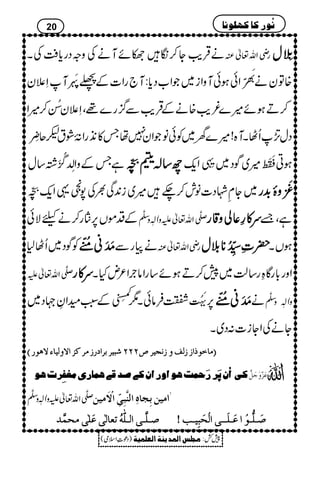 نُور کا کھلونا
20
بلال رضی اللہ تعالیٰ عنہ نے قریب جا کر نگاہیں جھکائے آنے کی وجہ دریافت کی۔
خاتون نے بھرّائی ہوئی آواز میں جواب دیا: آج رات کے پچھلے پہر آپ اِعلان
کرتے ہوئے میرے غریب خانے کے قریب سے گزرے تھے، اِعلان سُن کر میرا
دل تڑپ اُٹھا۔ آہ! میرے گھر میں کوئی نوجوان نہیں تھا جس کا نذرانۂ شوق لیکر حاضِر
ہوتی فَقَط میری گود میں یہی ایک چھ سالہ یتیم بچّہ ہے جس کے والِد گُزَشتہ سال
غزوۂ بدر میں جامِ شہادت نوش کر چکے ہیں میری زندگی بھر کی پُونجی یہی ایک بچّہ
ہے، جسے سرکارِ عالی وقار صلی اللہ تعالیٰ علیہ واٰلہ وسلم کے قدموں پر نثار کرنے کیلئے لائی
ہوں۔ حضرتِ سیِّدُنا بلال رضی اللہ تعالیٰ عنہ نے پیار سے مَدَنی مُنّے کو گود میں اُٹھا لیا
اور بارگاہِ رسالت میں پیش کرتے ہوئے سارا ماجرا عرض کیا۔ سرکار صلی اللہ تعالیٰ علیہ
واٰلہ وسلم نے مَدَنی مُنّے پر بَہُت شفقت فرمائی۔ مگر کمسِنی کے سبب میدانِ جہاد میں
جانے کی اجازت نہ دی۔
(ماخوذاز زلف و زنجیر ص۲۲۲ شبیر برادرز مرکز الاولیاء لاھور)
اللہ عزوجل کی اُن پر رَحمت ھو اور ان کے صدقے ھماری مغفِرت ھو
اٰمین بِجاہِ النَّبِیِّ الْاَمین صلی اللہ تعالیٰ علیہ واٰلہ وسلم
صَلُّوْا عَلَی الْحَبِیب ! صلَّی اللہُ تعالٰی عَلٰی محمَّد
پیش کش: مجلس المدینۃ العلمیۃ (دعوتِ اسلامی)